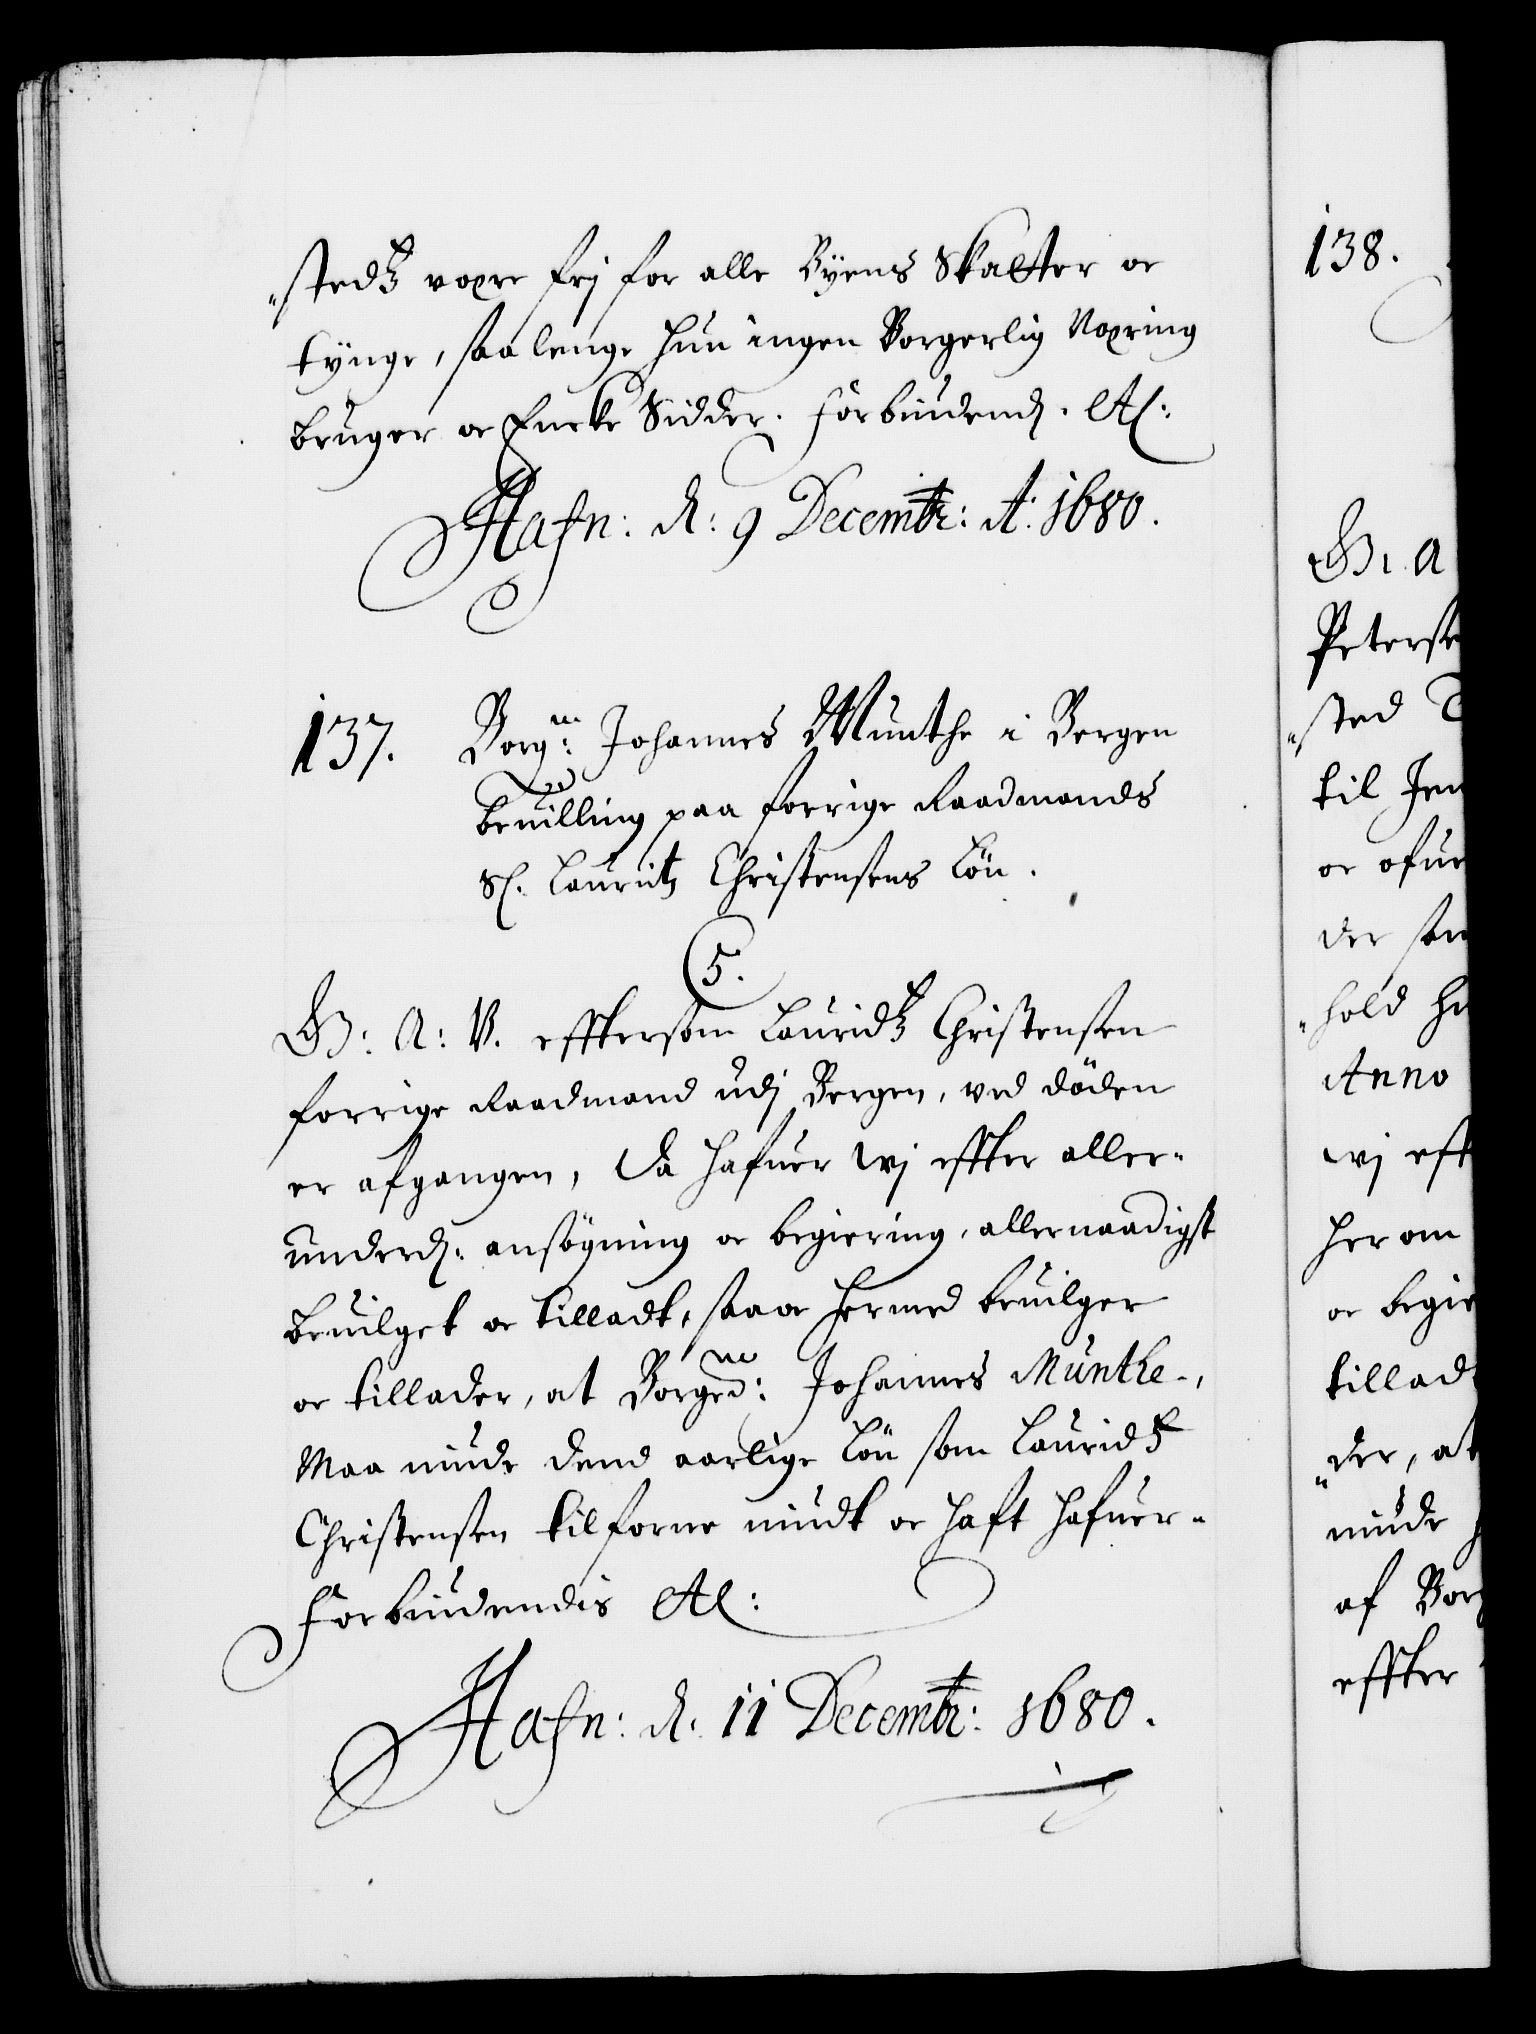 "stedtz være frj for alle Byens Skatter oc
tynge, saa lenge hun ingen Borgerlig Næring
bruger oc Encke Sidder. Forbiudend. etc:
Hafn: d: 9 Decembr: A: 1680.
137. Borgm: Johannes Munthe i Bergen
bevilling paa forrige Raadmands
Sl. Lauritz Christensens Løn.
5.
G: A: V. effterson Lauridtz Christensen
forrige Raadmand udj Bergen, ved döden
er afgangen, Da hafuer wj effter aller-
underd: ansøgning oc begiering, allernaadigst
beuilget oc tilladt, saa oc hermed beuilger
oc tillader, at Borgem: Johannes Munthe,
Maa niude dend aarlige Løn som Lauridtz
Christensen tilforne niudt oc haft hafuer.
Forbiudendis etc:
Hafn: d. 11 Decembr: 1680.
138.
G. A
Peterse
"sted
til Jen
oc ofue
der som
"hold he
Anno
wj eft
her om
oc begie
tillad
"der, at
niude
af Borg
effter